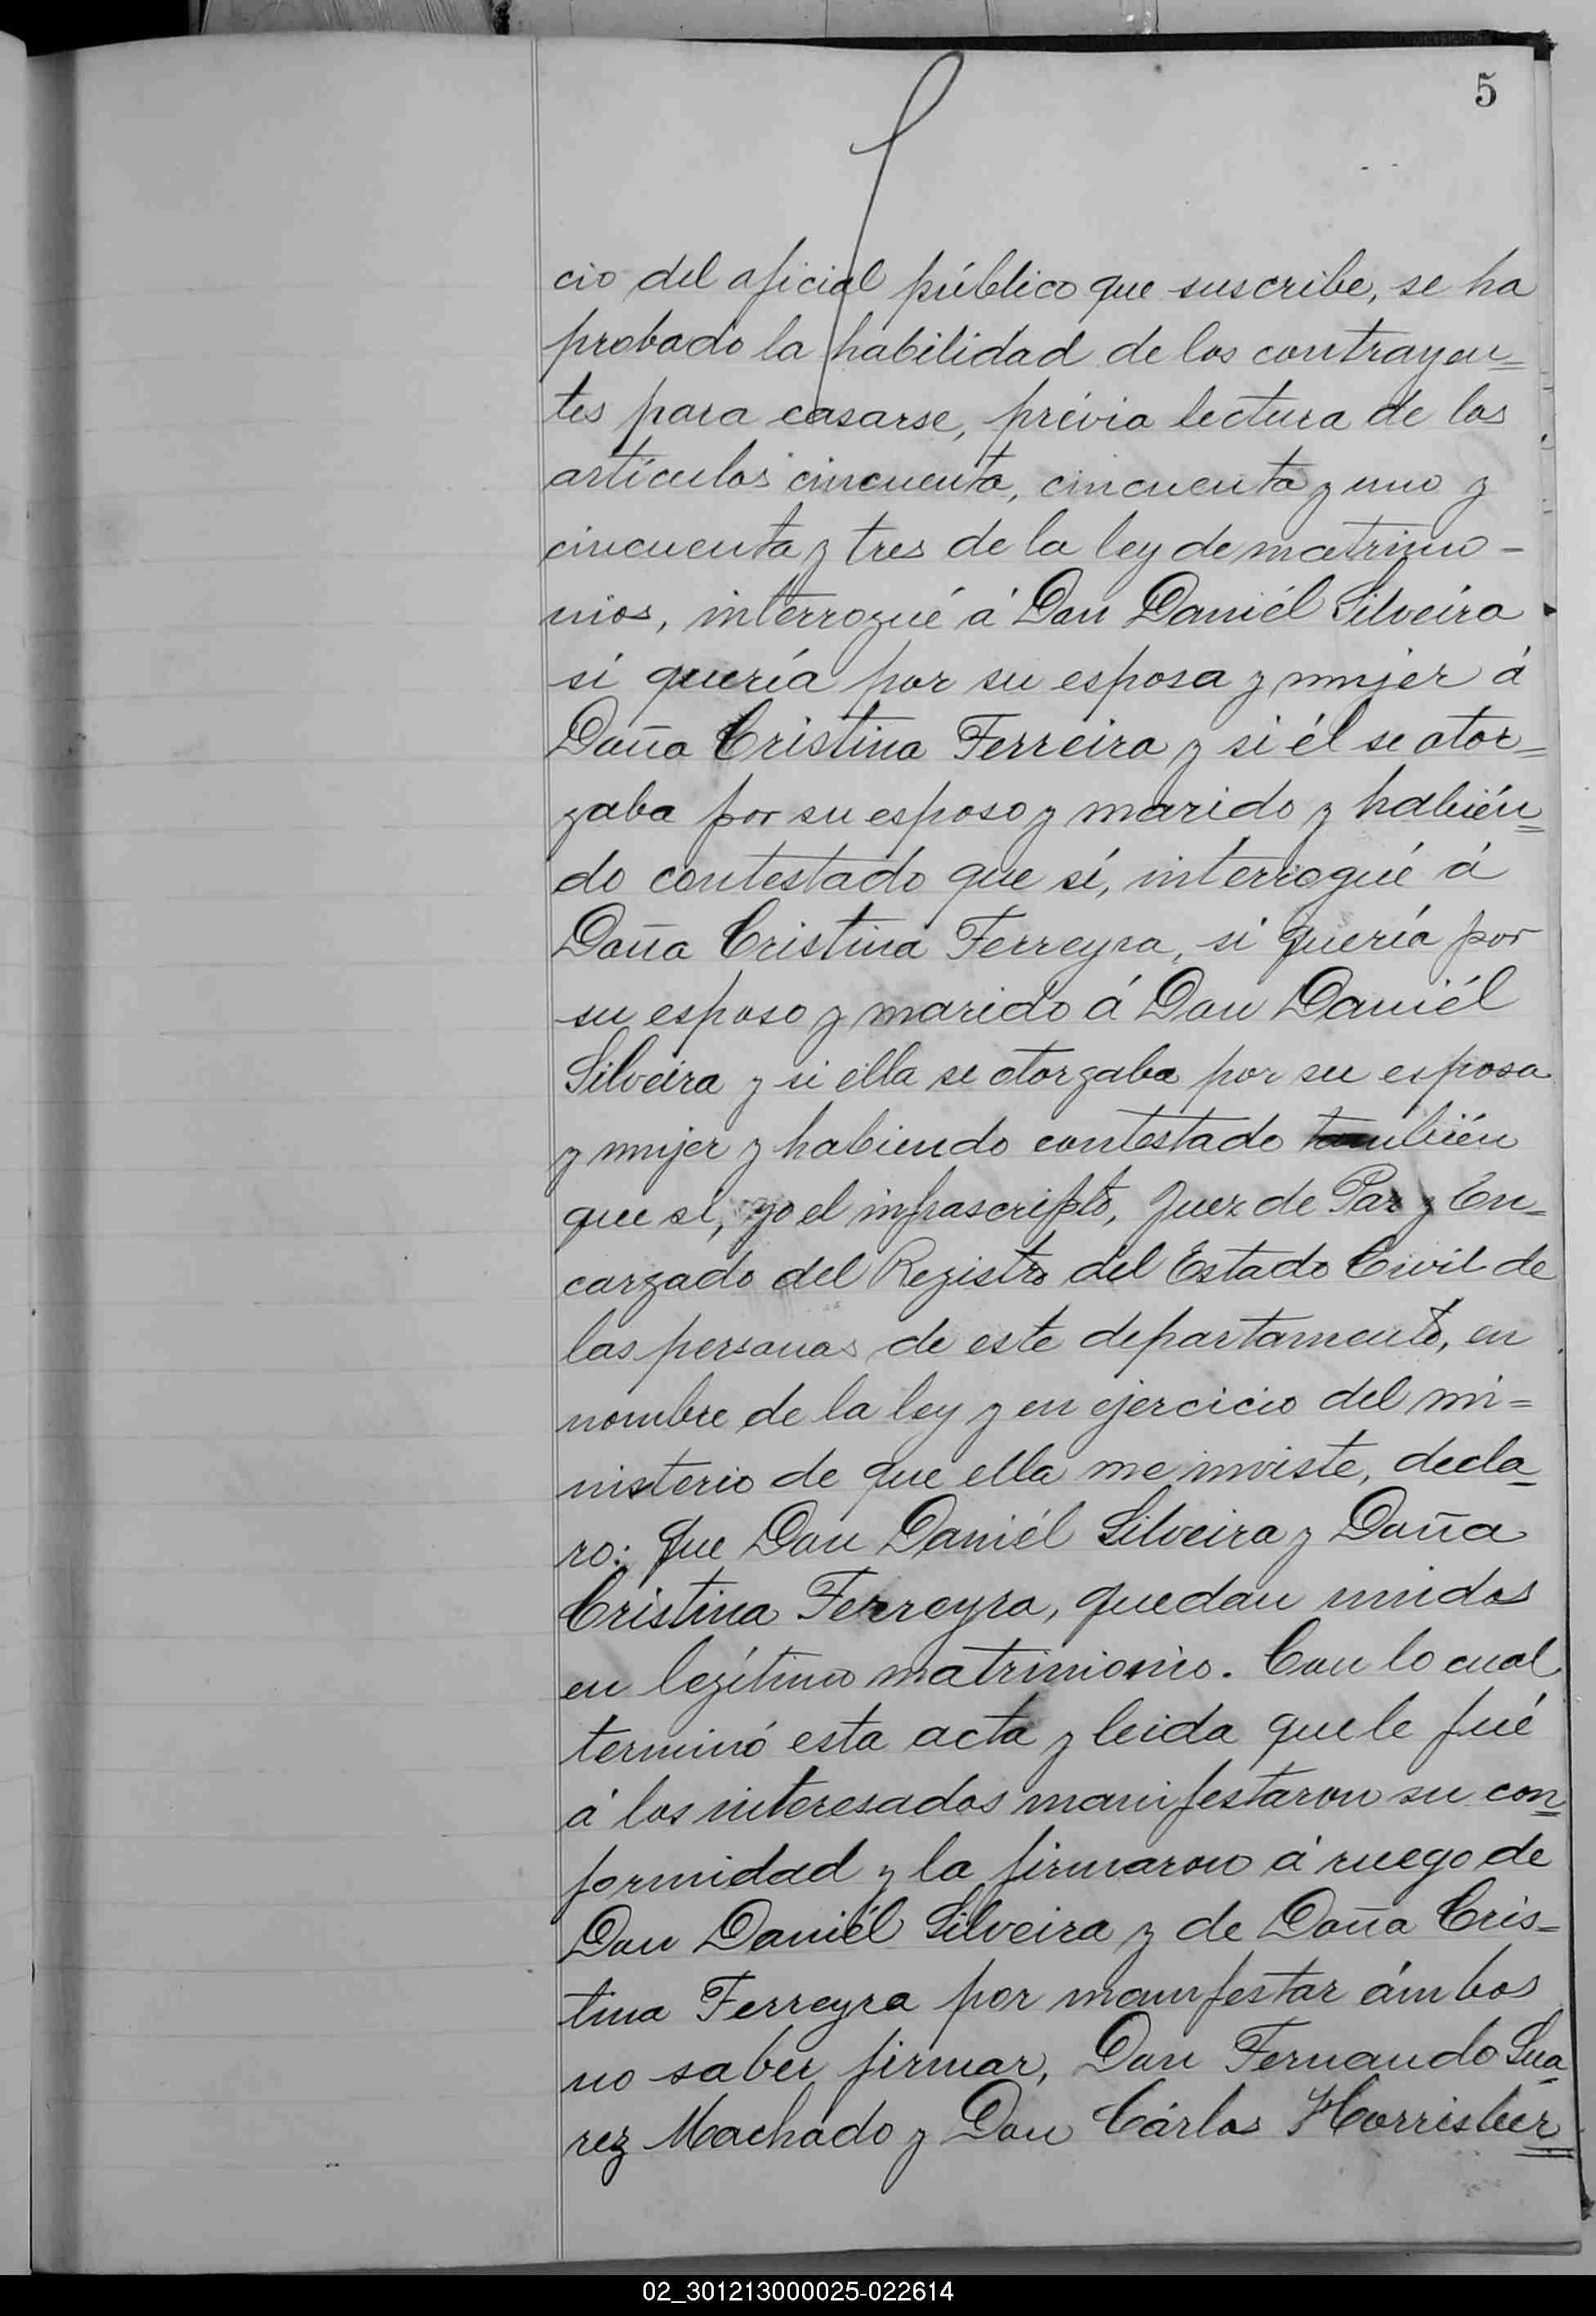 5
cio del oficial público que suscribe, se ha
probado la habilidad de los contrayen=
tes para casarse, prévia lectura de los
artículos cincuenta, cincuenta y uno y
cincuenta y tres de la ley de matrimo-
nios, interrogué á Don Daniél Silveira
si quería por su esposa y mujer á
Doña Cristina Ferreira y si él se otor=
gaba por su esposo y marido y habién=
do contestado que sí, interrogué á
Doña Cristina Ferreyra, si quería por
su esposo y marido á Don Daniél
Silveira y si ella se otorgaba por su esposa
y mujer y habiendo contestado también
que sí, yo el infrascripto, Juez de Paz y En=
cargado del Registro del Estado Civil de
las personas de este departamento, en
nombre de la ley y en ejercicio del mi=
nisterio de que ella me inviste, decla-
ro: que Don Daniél Silveira y Doña
Cristina Ferreyra, quedan unidos
en legítimo matrimonio. Con lo cual
terminó esta acta y leida que le fué
á los interesados manifestaron su con=
formidad y la firmaron á ruego de
Don Daniél Silveira y de Doña Cris=
tina Ferreyra por manifestar ámbos
no saber firmar, Don Fernando Sua-
rez Machado y Don Cárlos
02_301213000025-022614